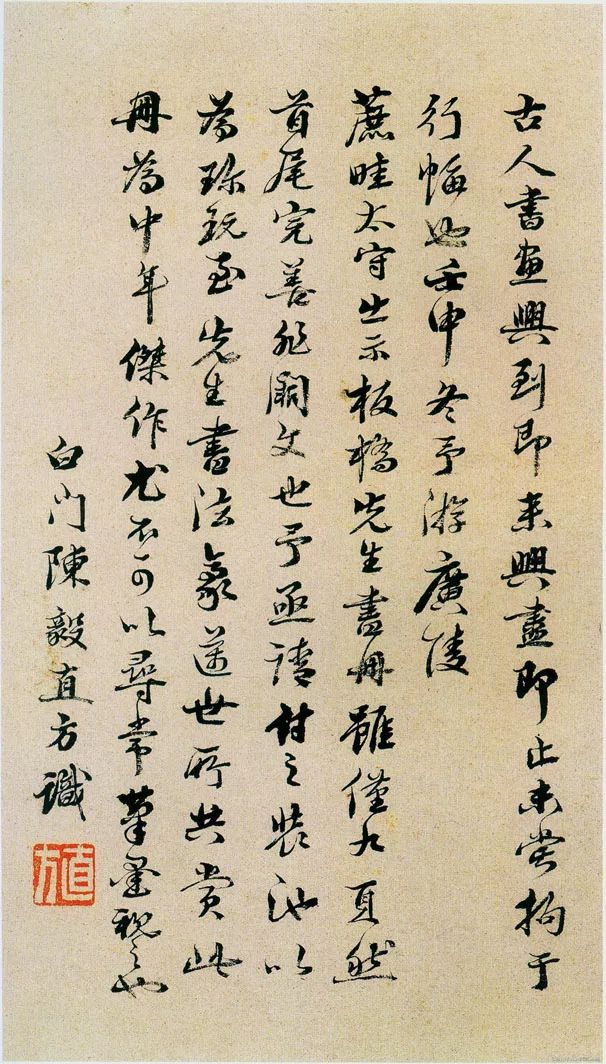 古人書畫興到即來興盡即止未嘗拘于
行幅也壬申冬予游廣陵
蔗畦太守出示板橋先生畫冊雖僅九頁然
首尾完善非闕文也予亟請付之裝池以
為珍玩至先生書法篆遒世所共賞此
冊為中年傑作尤不可以尋常筆墨視之也
白門陳毅直方識
直方